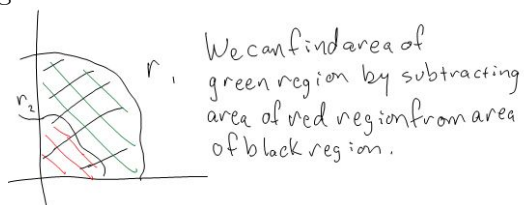 r₁
r₂
We can find area of
green region by subtracting
area of red region from area
of black region.